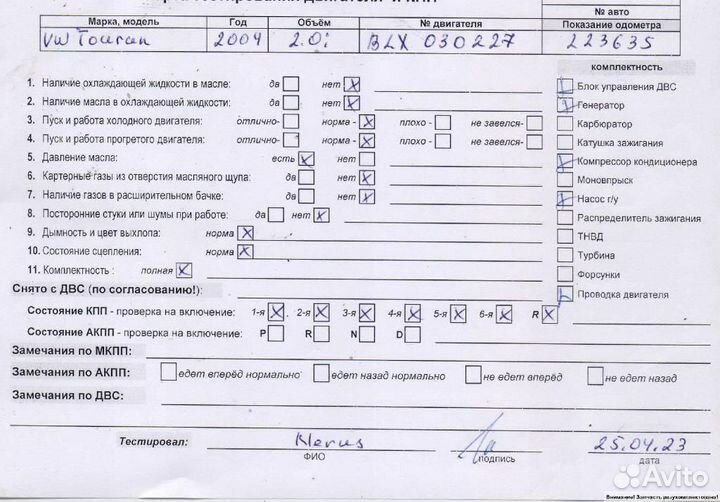 № авто
Марка, модель Год Объём № двигателя Показание одометра
VW Touran 2004 2.0i BLX 030227 223635
комплектность
1. Наличие охлаждающей жидкости в масле: да нет X
Блок управления ДВС
2. Наличие масла в охлаждающей жидкости: да нет X
Генератор
3. Пуск и работа холодного двигателя: отлично- норма - X плохо - не завелся-
Карбюратор
4. Пуск и работа прогретого двигателя: отлично- норма - X плохо - не завелся-
Катушка зажигания
5. Давление масла: есть X нет
Компрессор кондиционера
6. Картерные газы из отверстия масляного щупа: да нет X
Моновпрыск
7. Наличие газов в расширительном бачке: да нет X
Насос г/у
8. Посторонние стуки или шумы при работе: да нет X
Распределитель зажигания
9. Дымность и цвет выхлопа: норма X
ТНВД
10. Состояние сцепления: норма X
Турбина
11. Комплектность : полная X
Форсунки
Снято с ДВС (по согласованию!):
Проводка двигателя
Состояние КПП - проверка на включение: 1-я X 2-я X 3-я X 4-я X 5-я X 6-я X R X
Состояние АКПП - проверка на включение: P R N D
Замечания по МКПП:
Замечания по АКПП: едет вперёд нормально едет назад нормально не едет вперёд не едет назад
Замечания по ДВС:
Тестировал: Klerus 25.04.23
ФИО подпись дата
Avito